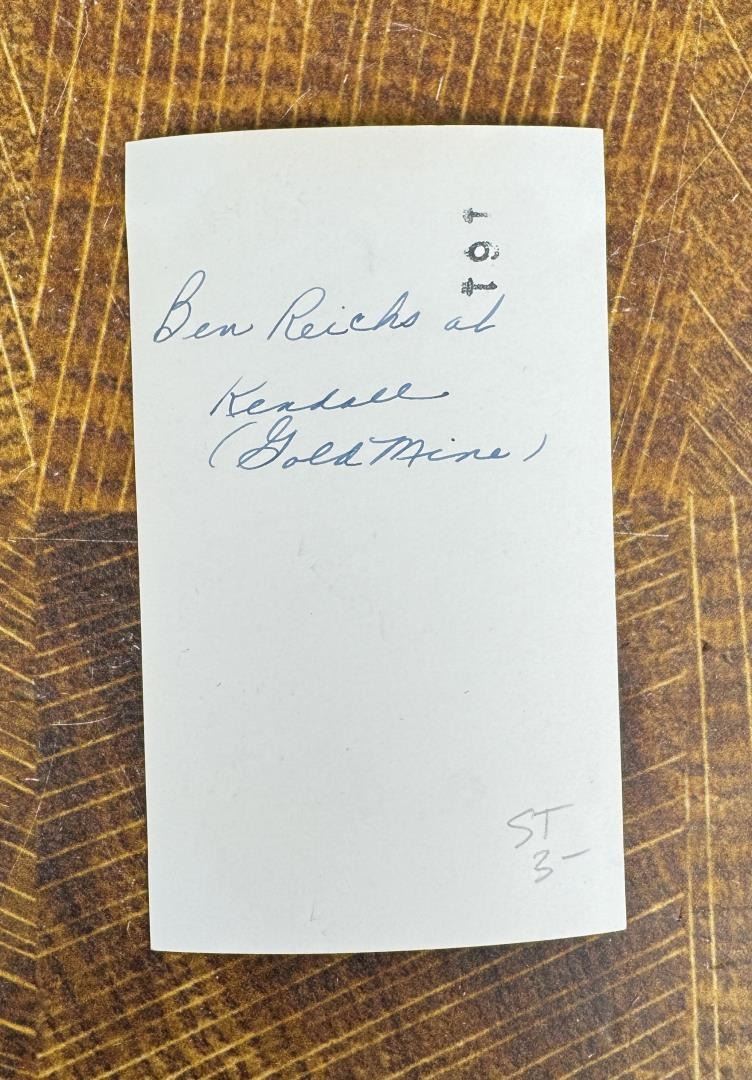 Ben Reichs at
Kendall
(Gold Mine)
ST
3-